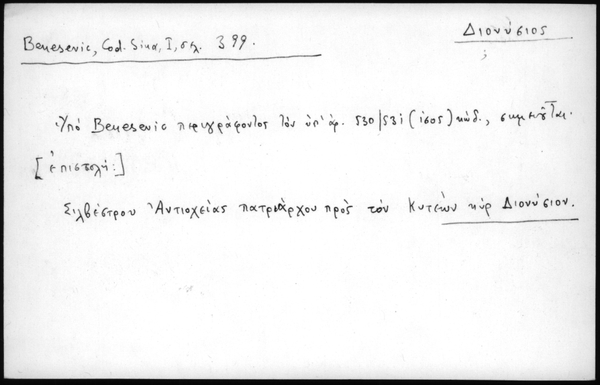 Διονύσιος
Benesevic, Cod. Sina, I, στλ. 399.
;
Ὑπό Benesevic περιγράφοντος τόν ὑπ' ἀρ. 530/531 (ἴσος) κώδ., σημειοῦται.
[ἐπιστολή:]
Σιλβέστρου Ἀντιοχείας πατριάρχου πρός τόν Κυτέων κύρ Διονύσιον.